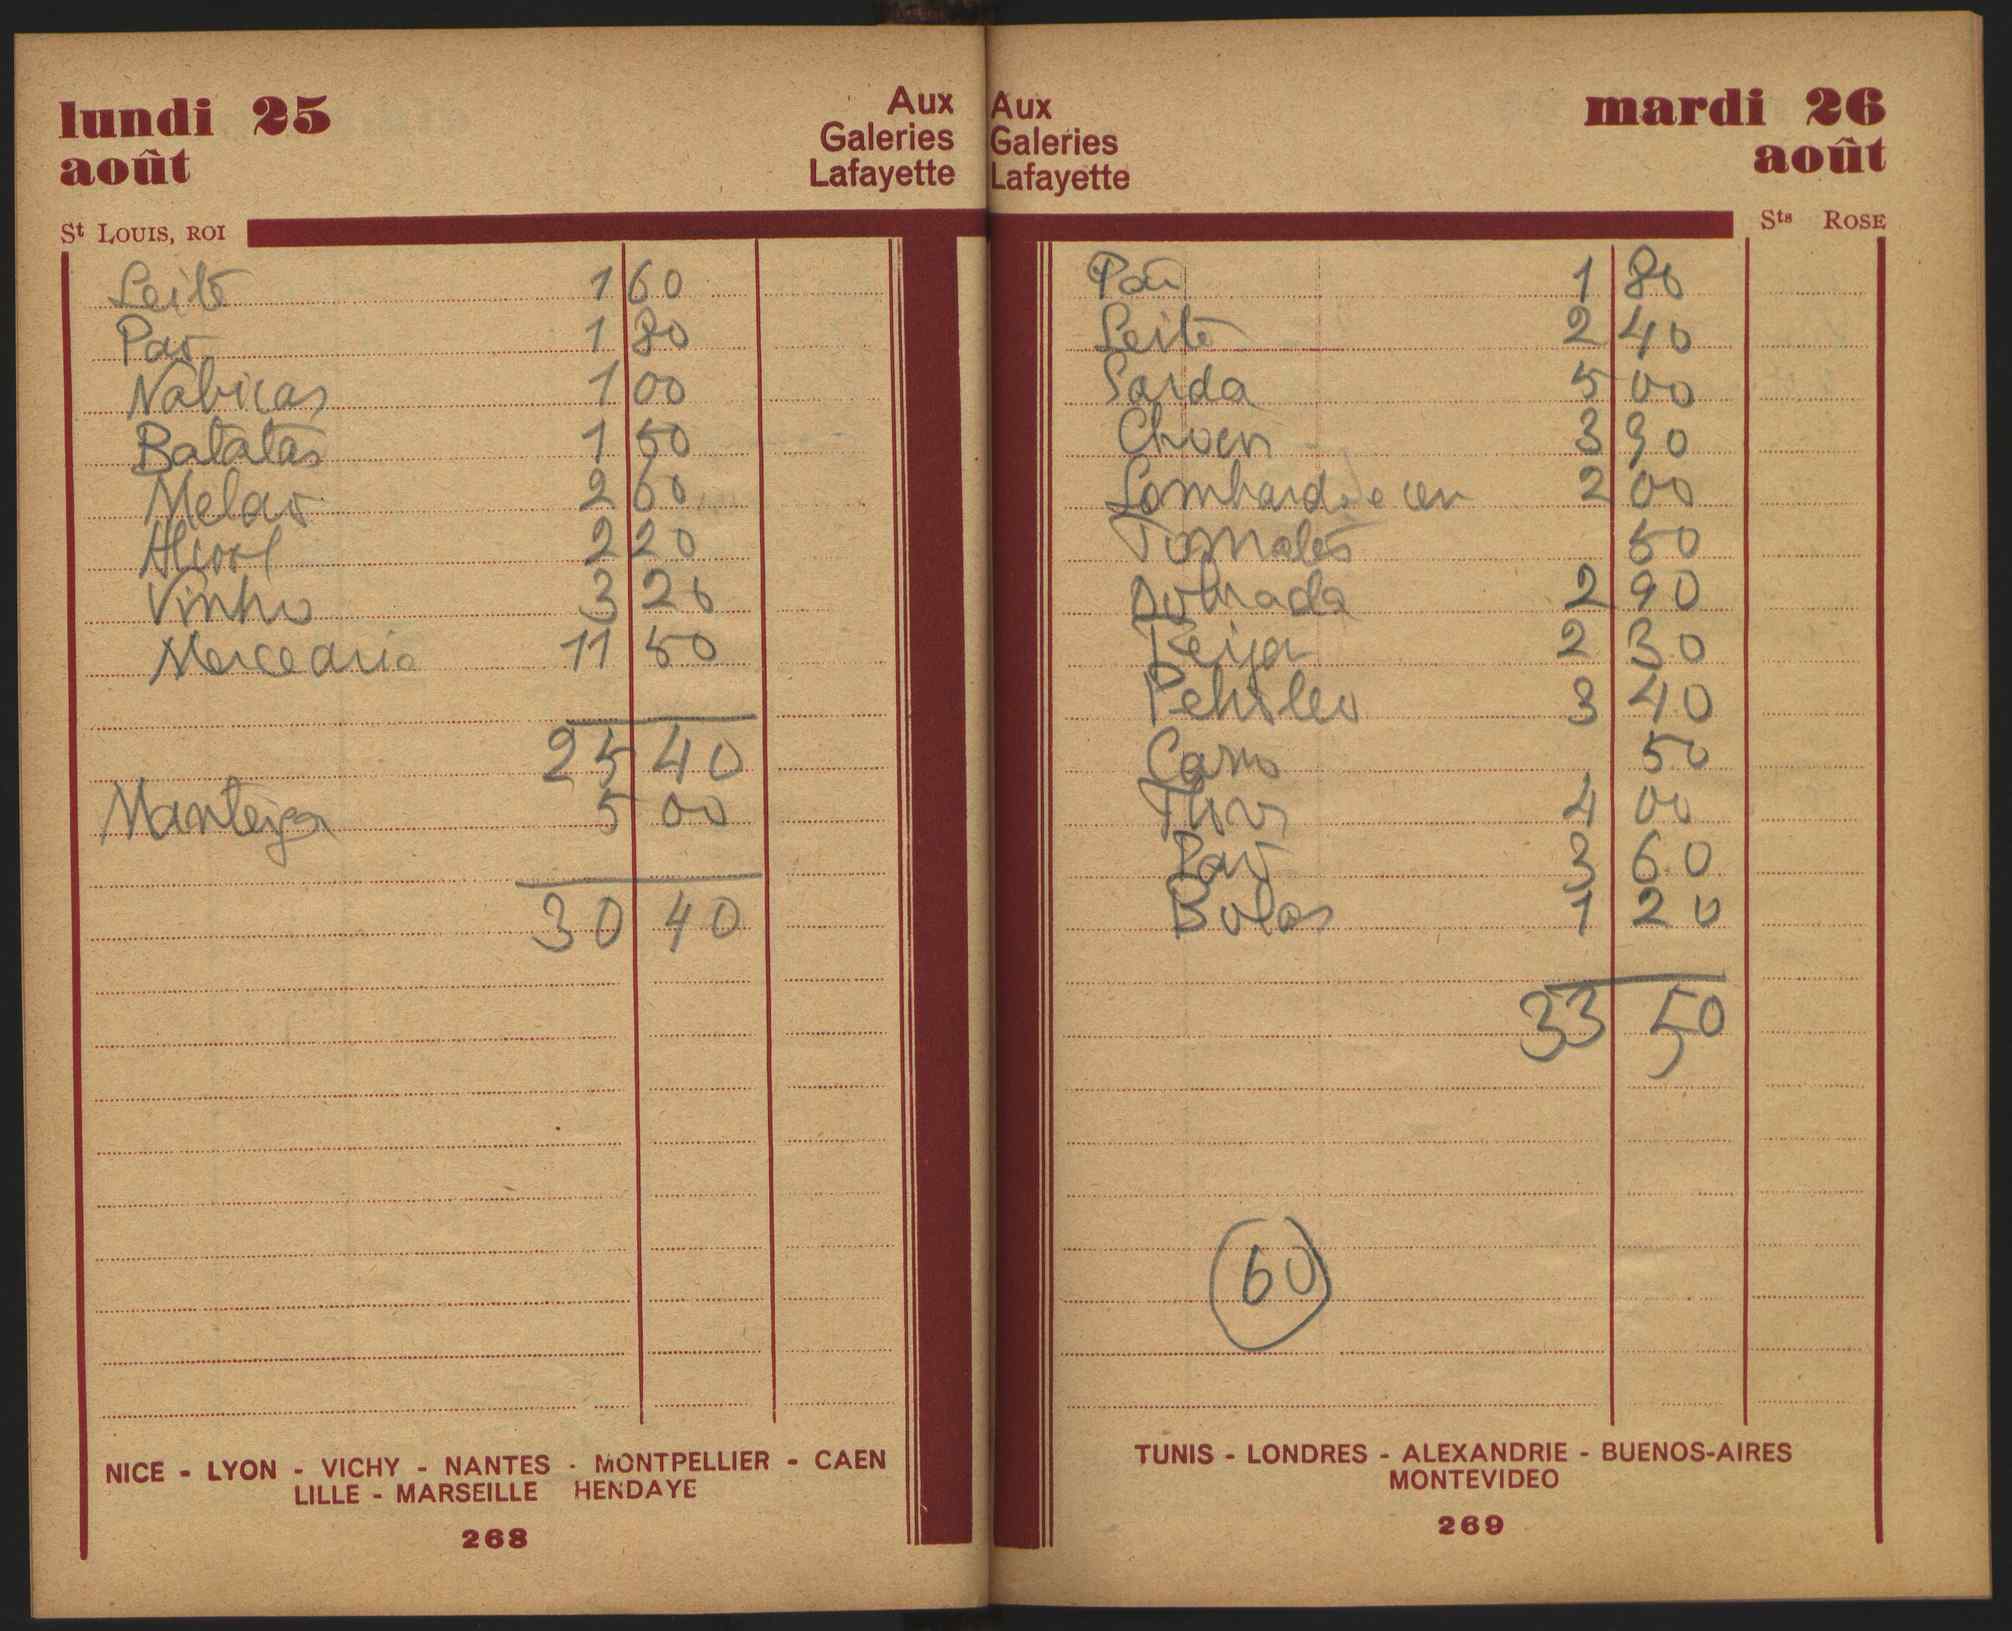 lundi 25
août
Aux
Galeries
Lafayette
St LOUIS, ROI
Leite 1 60
Pao 1 80
Nabiças 1 00
Batatas 1 50
Melao 2 60
Alcool 2 20
Vinho 3 20
Mercearia 11 50
25 40
Manteiga 5 00
30 40
NICE - LYON - VICHY - NANTES - MONTPELLIER - CAEN
LILLE - MARSEILLE HENDAYE
268
Aux
Galeries
Lafayette
mardi 26
août
Sts ROSE
Pão 1 80
Leite 2 40
Sarda 5 00
3 90
Lombarda e 2 00
Tomates 50
Dobrada 2 90
2 30
Petroleo 3 40
Carro 50
4 00
Pao 3 60
Bolos 1 20
33 50
60
TUNIS - LONDRES - ALEXANDRIE - BUENOS-AIRES
MONTEVIDEO
269